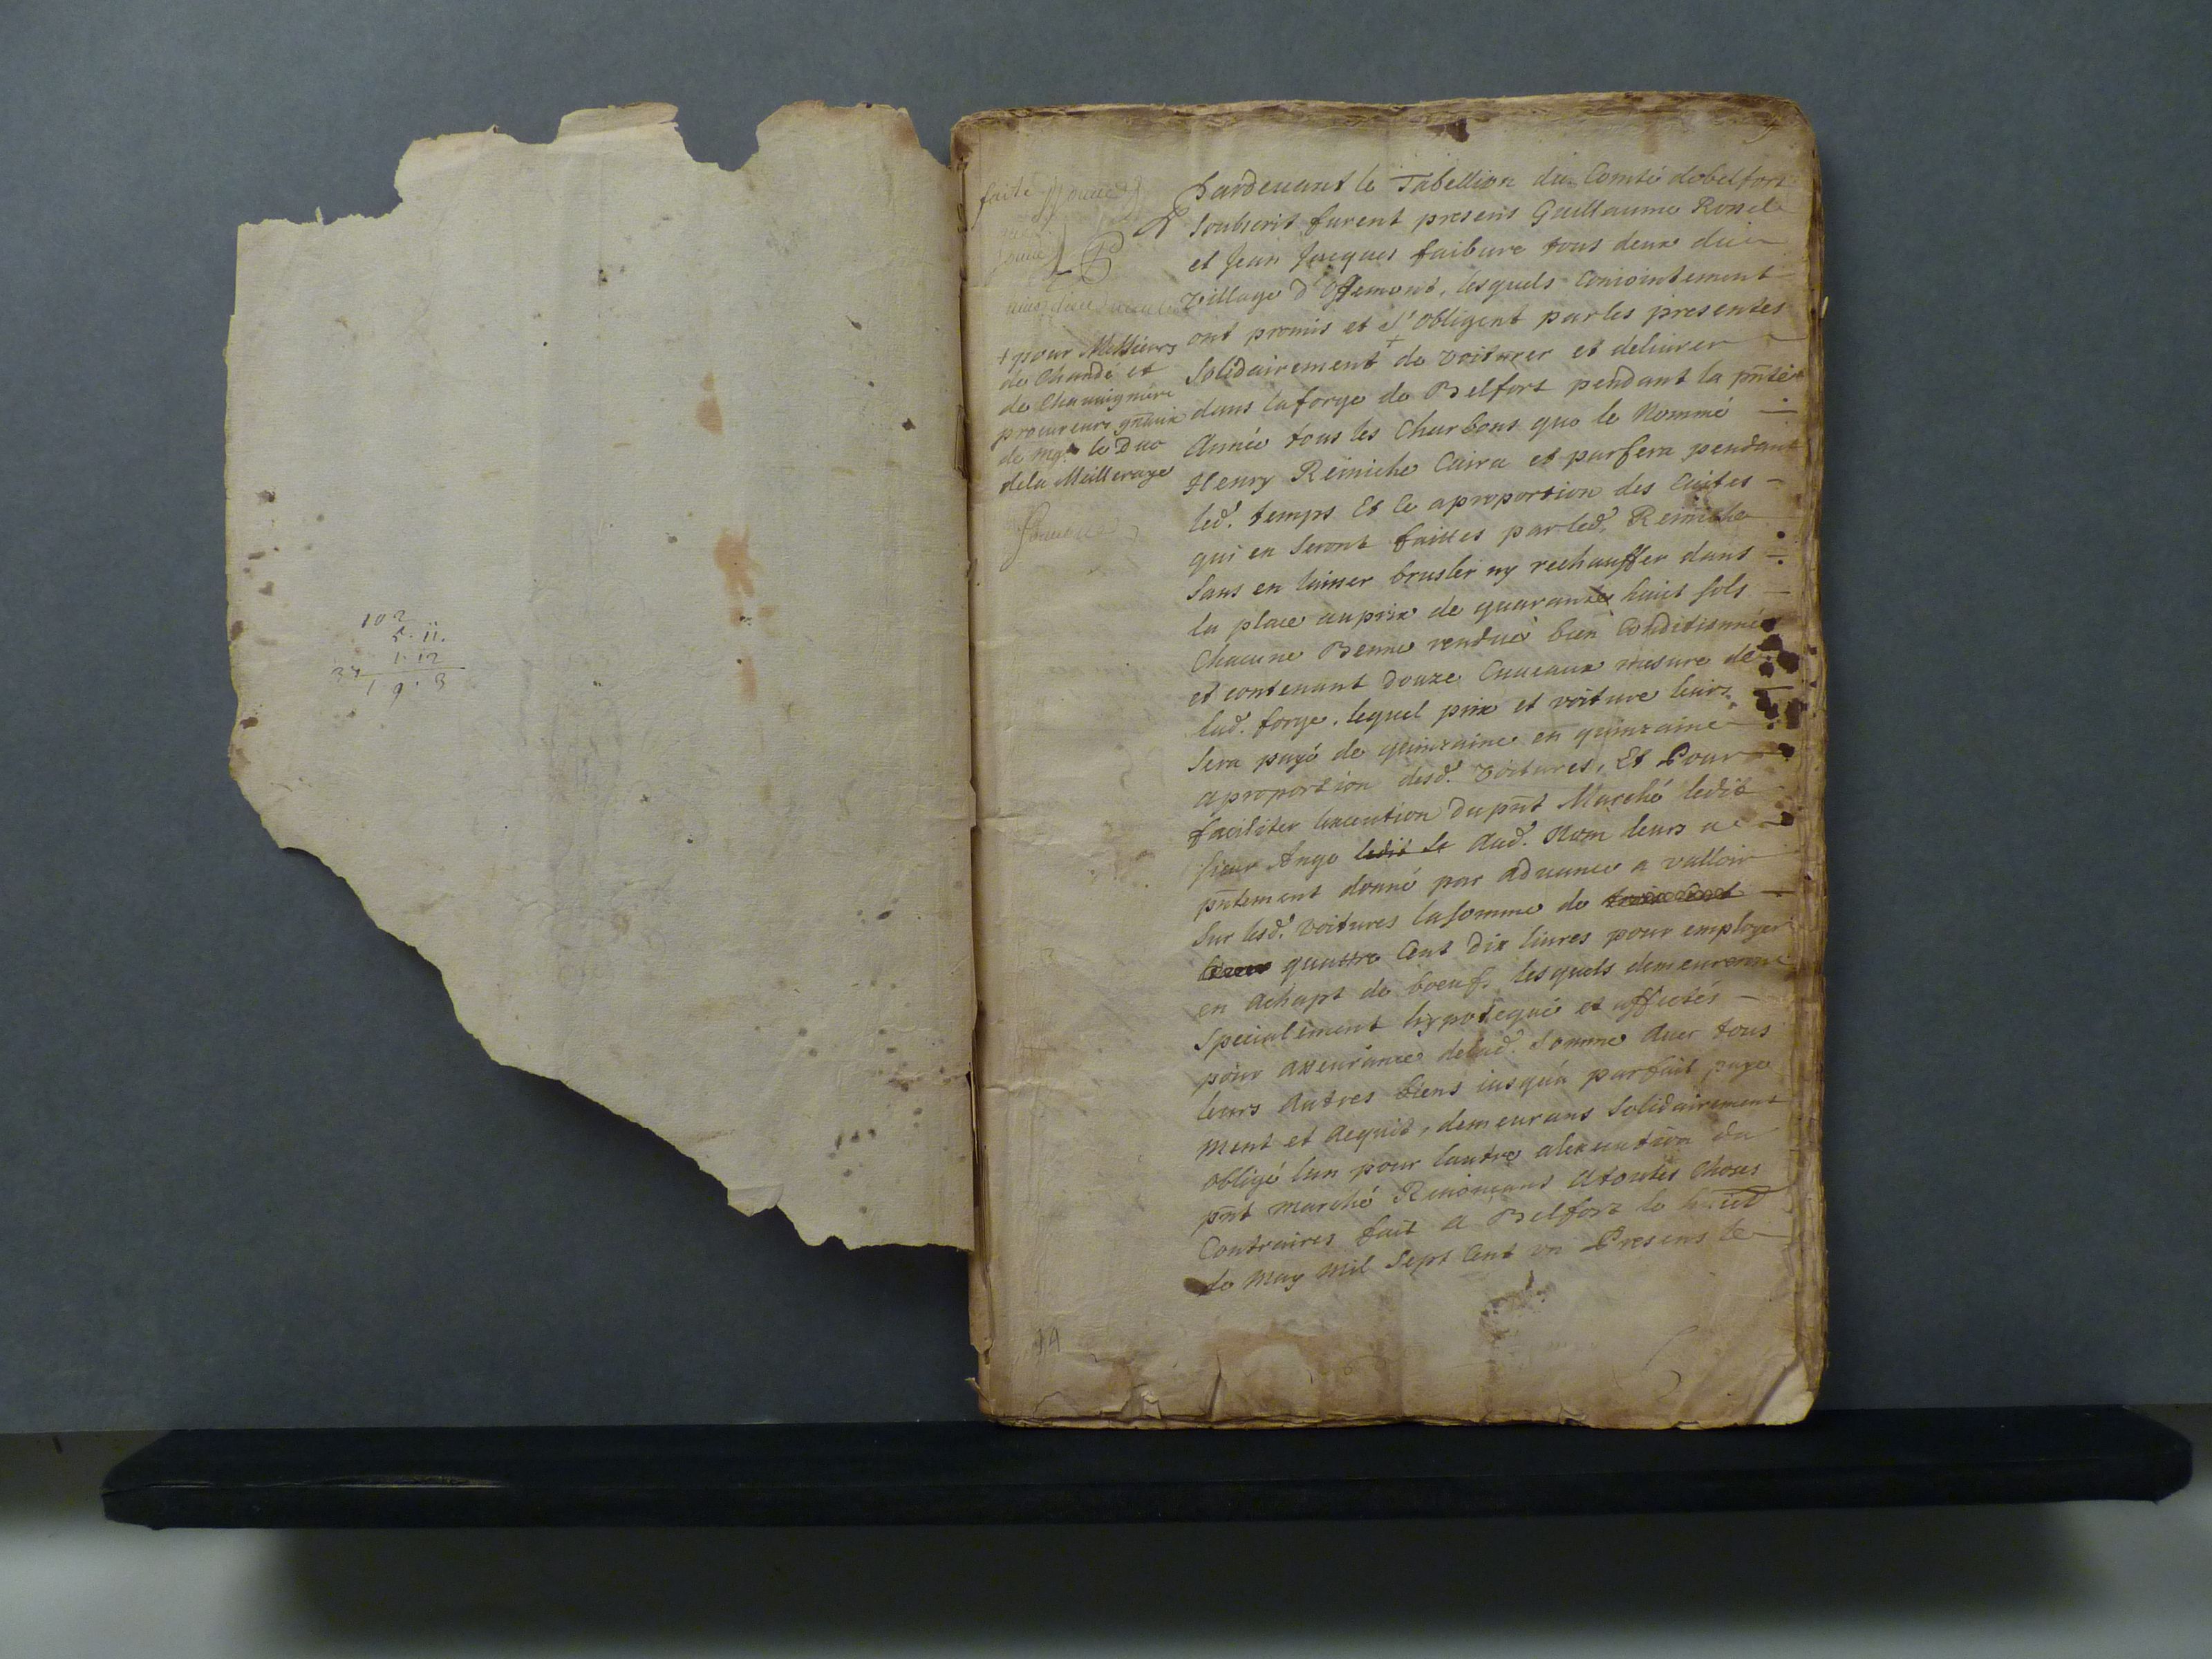 102
5. 11.
1. 12
34
1 9. 3
faite
+ pour Messieurs
de Chandé et
de Chauuignéri
procureurs gñaux
de mgr le Duc
de la Meilleraye
Pardeuant le Tabellion du Comté de belfort
soubscrit furent presens Guillaume Ronde
et Jean Jacques faibure tous deux du
village d'Offemont, lesquels Conjointement
ont promis et s'obligent par les presentes
solidairement + de voiturer et deliurer
dans la forge de Belfort pendant la pñte
Année tous les Charbons que le Nommé
Henry Reiniche Cuira et parfera pendant
led. temps Et Ce a proportion des Cuites
qui en seront faittes par led. Reiniche
Sans en laisser brusler ny rechauffer dans
la place au prix de quarante huit sols
Chacune Benne rendue bien Conditionnée
et contenant douze Cuueaux mesure de
lad. forge. lequel prix et voiture leurs
sera payé de quinzaine en quinzaine
a proportion desd. voitures, Et Pour
faciliter lexecution du pñt Marché ledit
sieur Ange ledit Sr Aud. Nom leurs a
pñtement donné par aduance a valloir
Sur lesd. voitures la somme de
quattre Cent Dix liures pour employer
en Achapt de boeufs lesquels demeureront
specialement hypotequé et affectés
pour asseurance de lad. somme Auec tous
leurs Autres biens jusqu'a parfait paye
ment et Acquid, demeurans solidairement
obligé lun pour lautre a lexecution du
pñt marché Renonceans A toutes Choses
Contraires fait A Belfort le huict
de May Mil Sept Cent un Presens le